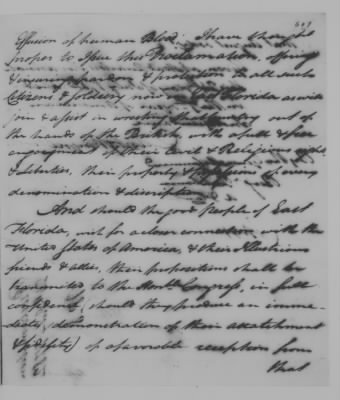 Effusion of human Blood: I have thought
proper to Issue this Proclamation, offering
& insuring pardon & protection to all such
Citizens & soldiery now in East Florida as will
join & assist in wresting that Country out of
the hands of the British, with a full & free
enjoyment of their Civil & Religious rights
& Liberties, their property & of every
denomination & description
And should the good People of East
Florida, wish for a closer connection with the
United States of America, & their Illustrious
friends & allies, their propositions shall be
transmitted to the Honble Congress, in full
confidence (should they produce an imme-
diate demonstration of their attachment
& fidelity) of a favorable reception from
that